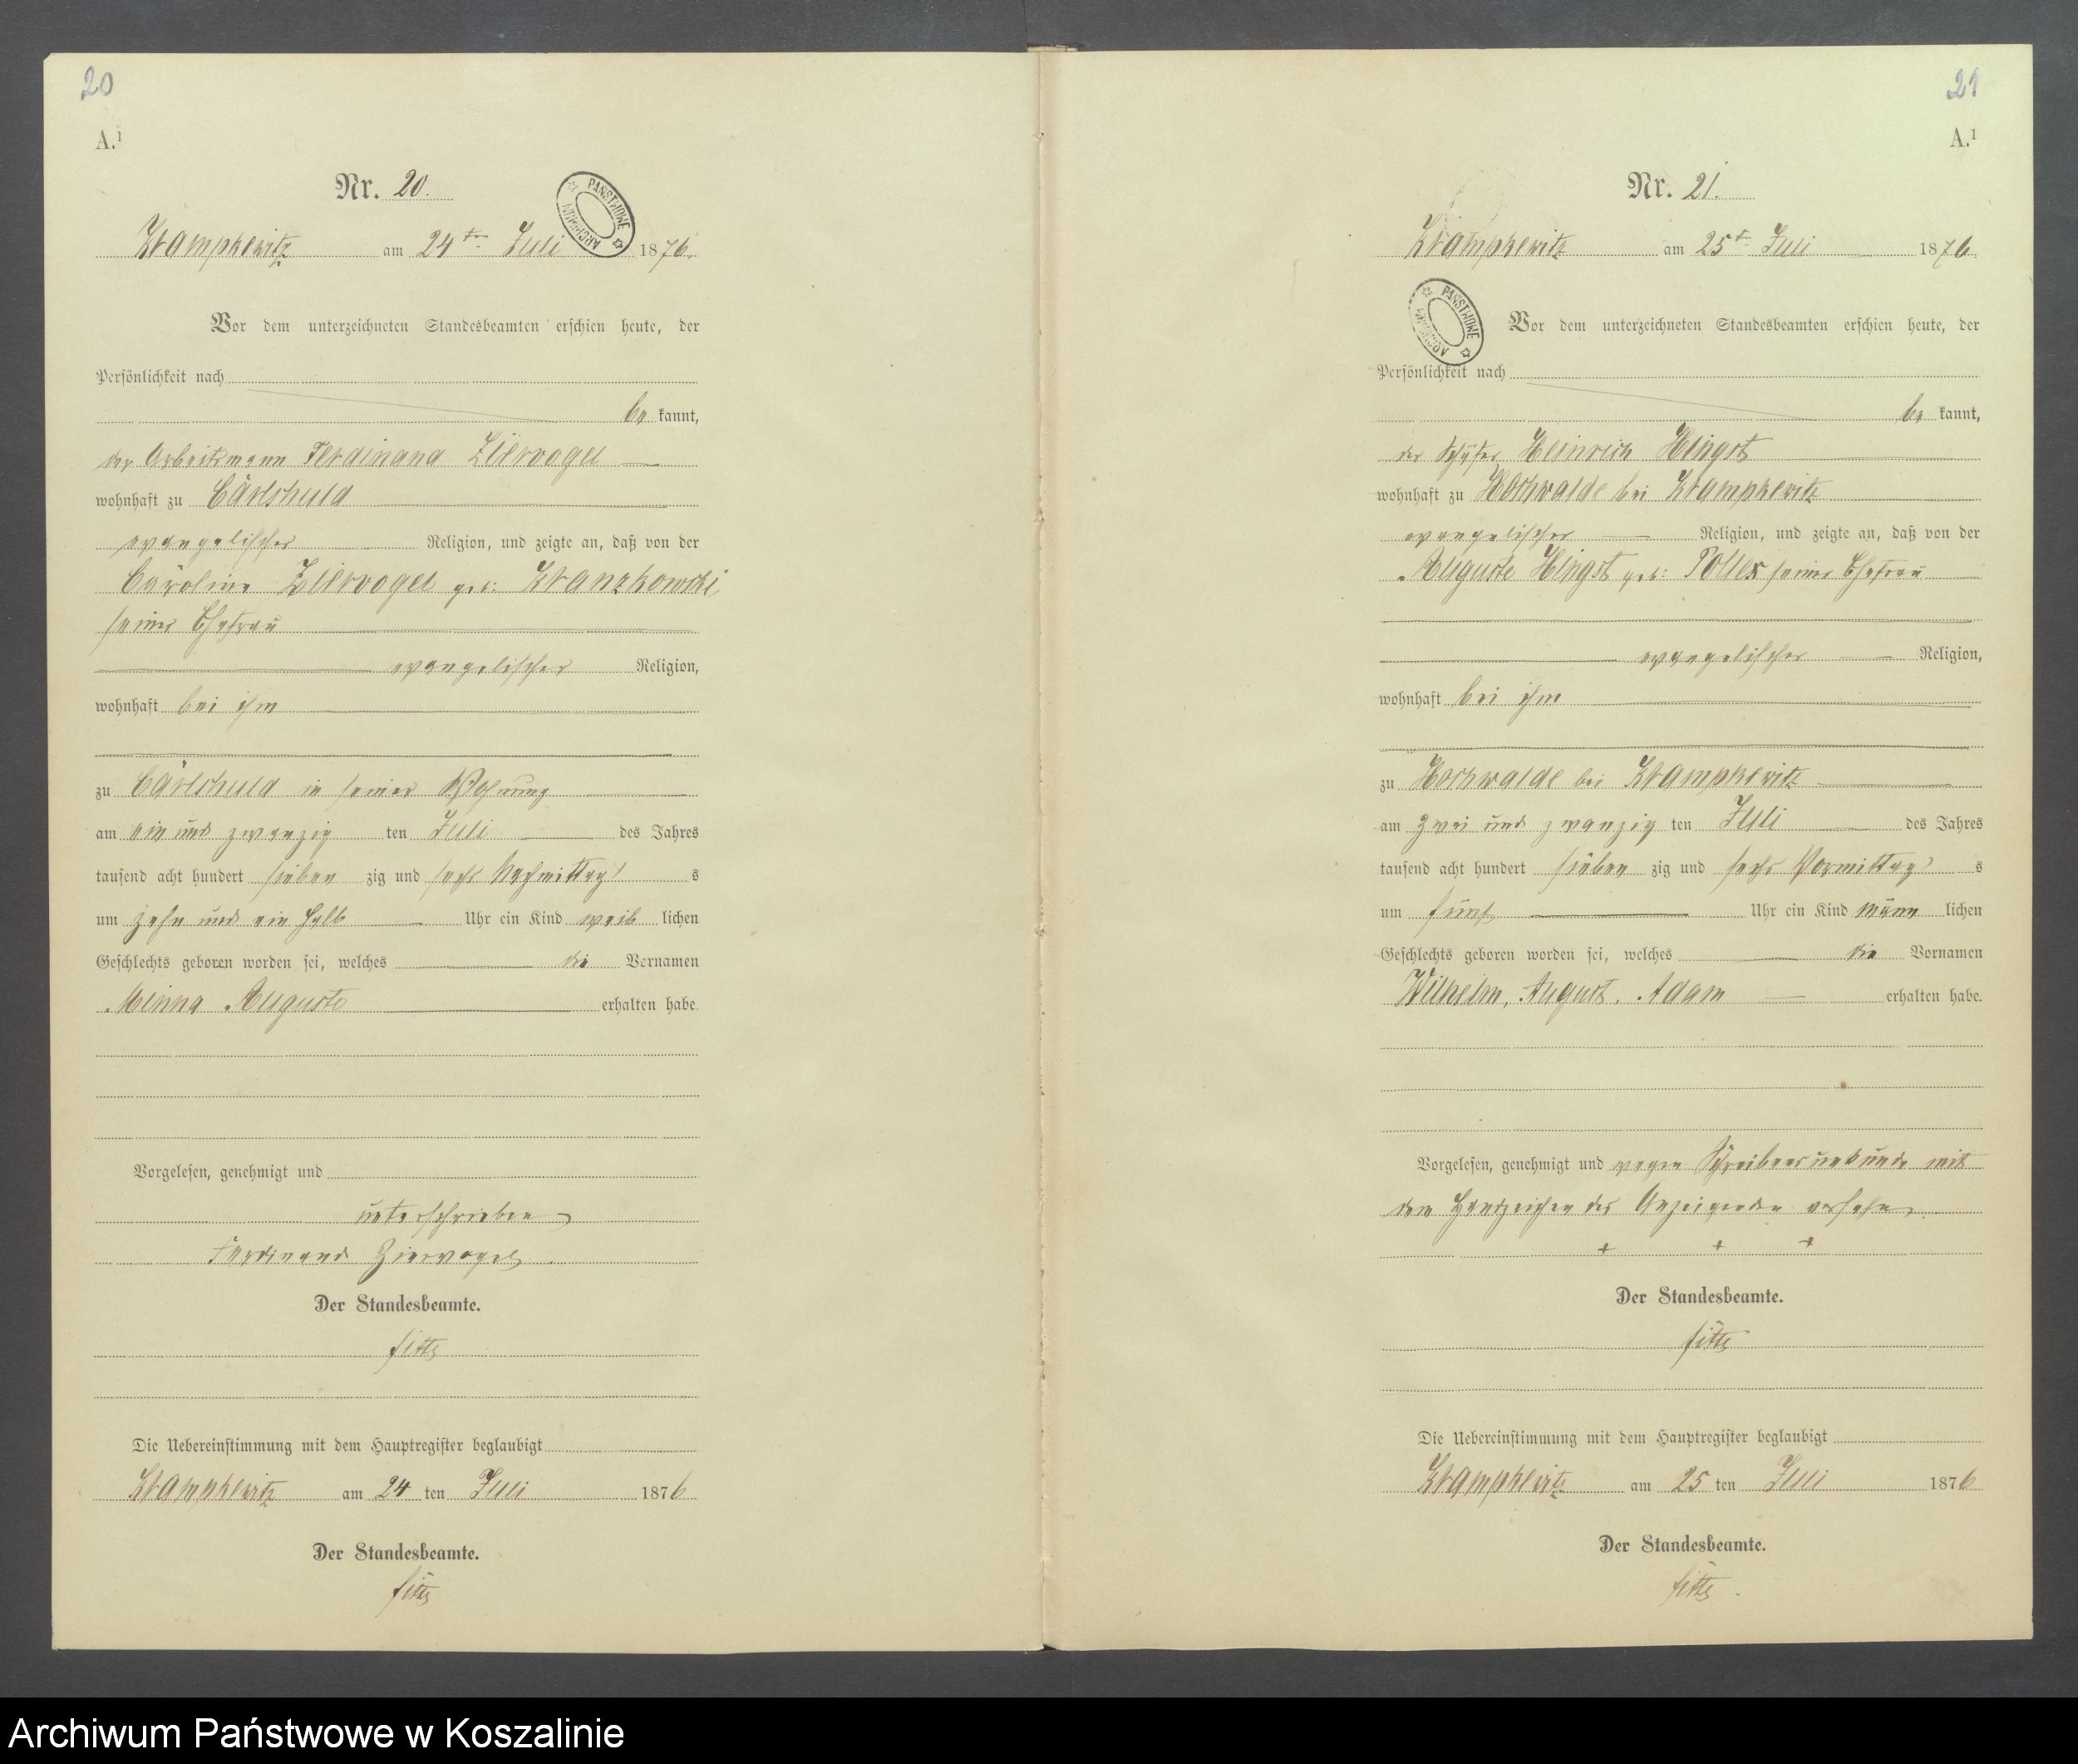 20
A.¹
Nr. 20.
PAŃSTWOWE ARCHIWUM
Krampkewitz am 24ten Juli 1876.
Vor dem unterzeichneten Standesbeamten erschien heute, der
Persönlichkeit nach
be kannt,
der Arbeitsmann Ferdinand Ziervogel
wohnhaft zu Carlshuld
evangelischer Religion, und zeigte an, daß von der
Caroline Ziervogel geb: Kranzkowski,
seiner Ehefrau
evangelischer Religion,
wohnhaft bei ihm
zu Carlshuld in seiner Wohnung
am ein und zwanzig ten Juli des Jahres
tausend acht hundert sieben zig und sechs Nachmittag s
um zehn und ein halb Uhr ein Kind weib lichen
Geschlechts geboren worden sei, welches die Vornamen
Minna Auguste erhalten habe.
Vorgelesen, genehmigt und
unterschrieben
Ferdinand Ziervogel
Der Standesbeamte.
Die Uebereinstimmung mit dem Hauptregister beglaubigt
Krampkewitz am 24 ten Juli 1876
Der Standesbeamte.
21
A.¹
Nr. 21.
Krampkewitz am 25t. Juli 1876
PAŃSTWOWE ARCHIWUM
Vor dem unterzeichneten Standesbeamten erschien heute, der
Persönlichkeit nach
be kannt,
der Schäfer Heinrich Hingst
wohnhaft zu Hochwalde bei Krampkewitz
evangelischer Religion, und zeigte an, daß von der
Auguste Hingst geb: seiner Ehefrau
evangelischer Religion,
wohnhaft bei ihm
zu Hochwalde bei Krampkewitz
am zwei und zwanzig ten Juli des Jahres
tausend acht hundert sieben zig und sechs Vormittag s
um fünf Uhr ein Kind männ lichen
Geschlechts geboren worden sei, welches die Vornamen
Wilhelm, August, Adam erhalten habe.
Vorgelesen, genehmigt und wegen Schreibensunkunde mit
dem Handzeichen des Anzeigenden versehen
+ + +
Der Standesbeamte.
Die Uebereinstimmung mit dem Hauptregister beglaubigt
Krampkewitz am 25 ten Juli 1876
Der Standesbeamte.
Archiwum Państwowe w Koszalinie